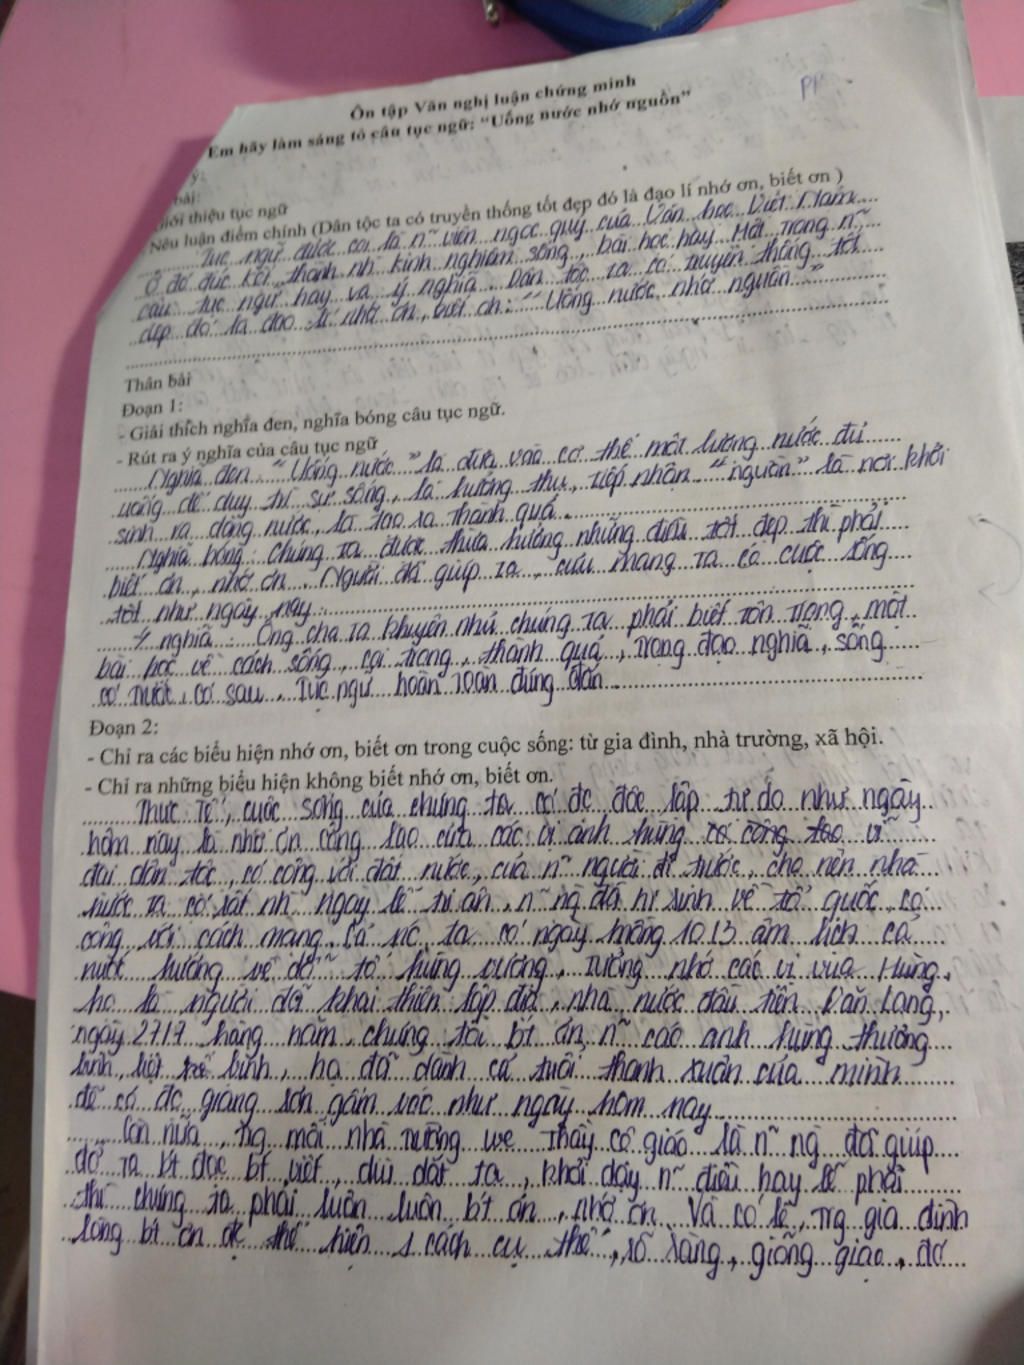 Ôn tập Văn nghị luận chứng minh
Em hãy làm sáng tỏ câu tục ngữ: "Uống nước nhớ nguồn"
ý:
bài:
giới thiệu tục ngữ
Nêu luận điểm chính (Dân tộc ta có truyền thống tốt đẹp đó là đạo lí nhớ ơn, biết ơn )
Tục ngữ được coi là n~ viên ngọc quý của Văn học Việt Nam
Ở đó đúc kết, thành nh~ kinh nghiệm sống, bài học hay. Một trong n~
câu tục ngữ hay và ý nghĩa. Dân tộc ta có truyền thống tốt
đẹp đó là đạo lí nhớ ơn, biết ơn: "Uống nước nhớ nguồn"
Thân bài
Đoạn 1:
- Giải thích nghĩa đen, nghĩa bóng câu tục ngữ.
- Rút ra ý nghĩa của câu tục ngữ
Nghĩa đen: "Uống nước" là đưa vào cơ thể một lượng nước đủ
uống để duy trì sự sống, là hưởng thụ, tiếp nhận "nguồn" là nơi khởi
sinh ra dòng nước, là tạo ra thành quả
Nghĩa bóng: chúng ta được thừa hưởng những điều tốt đẹp thì phải
biết ơn, nhớ ơn. Người đã giúp ta, cưu mang ta có cuộc sống
tốt như ngày nay.
Ý nghĩa: Ông cha ta khuyên nhủ chúng ta phải biết tôn trọng, một
bài học về cách sống, coi trọng, thành quả, trọng đạo nghĩa, sống
có trước, có sau. Tục ngữ hoàn toàn đúng đắn.
Đoạn 2:
- Chỉ ra các biểu hiện nhớ ơn, biết ơn trong cuộc sống: từ gia đình, nhà trường, xã hội.
- Chỉ ra những biểu hiện không biết nhớ ơn, biết ơn.
Thực tế, cuộc sống của chúng ta có đc độc lập tự do như ngày
hôm nay là nhờ ơn công lao của các vị anh hùng có công lao vĩ
đại dân tộc, có công với đất nước, của n~ người đi trước, cho nên nhà
nước ta có rất nh~ ngày lễ tri ân, n~ ng đã hi sinh về tổ quốc, có
công với cách mạng. Cả nc ta có ngày mồng 10/3 âm lịch cả
nước hướng về đền tổ hùng vương, tưởng nhớ các vị vua Hùng,
họ là người đã khai thiên lập địa, nhà nước đầu tiên Văn Lang,
ngày 27/7 hàng năm chúng tôi bt ơn n~ các anh hùng thương
binh, liệt binh, họ đã dành cả tuổi thanh xuân của mình
để có đc giang sơn gấm vóc như ngày hôm nay
Còn nữa, ng mái nhà trường thầy cô giáo là n~ ng đã giúp
đỡ ta bt đọc bt viết, dìu dắt ta, khơi dậy n~ điều hay lẽ phải
thì chúng ta phải luôn luôn bt ơn, nhớ ơn. Và có lẽ, trg gia đình
lòng bt ơn đc thể hiện 1 cách cụ thể, rõ ràng, giống giáo, đơ